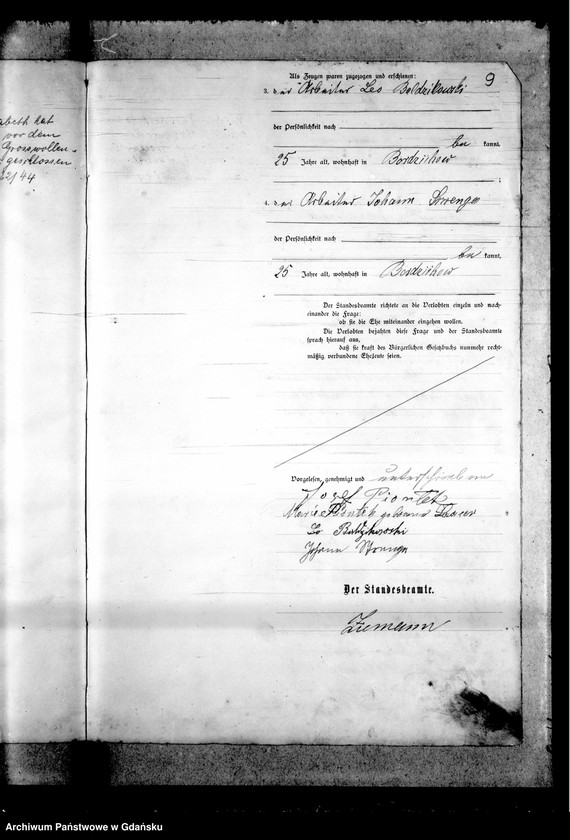 9
Als Zeugen waren zugezogen und erschienen:
3. der Arbeiter Leo
der Persönlichkeit nach
be kannt,
25 Jahre alt, wohnhaft in Bordzichow
;
4. der Arbeiter Johann
der Persönlichkeit nach
be kannt,
25 Jahre alt, wohnhaft in Bordzichow
Der Standesbeamte richtete an die Verlobten einzeln und nach-
einander die Frage:
ob sie die Ehe miteinander eingehen wollen.
Die Verlobten bejahten diese Frage und der Standesbeamte
sprach hierauf aus,
daß sie kraft des Bürgerlichen Gesetzbuchs nunmehr recht-
mäßig verbundene Eheleute seien.
Vorgelesen, genehmigt und unterschrieben
Josef Piontek
Marie Piontek geborene
Leo
Johann
Der Standesbeamte.
Ziemann
hat
vor dem
geschlossen
Archiwum Państwowe w Gdańsku